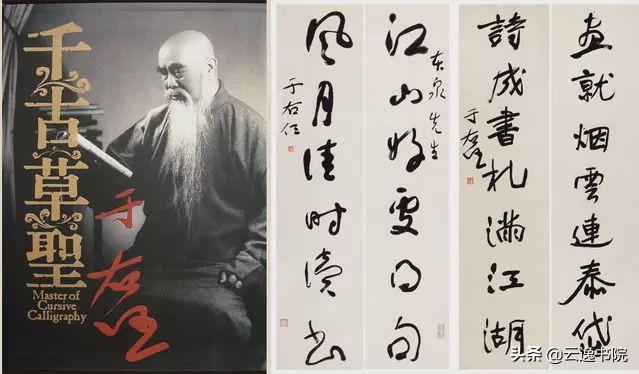 千古草聖
于右任
Master of
Cursive
Calligraphy
江山好處得句
東泉先生
風月佳時讀書
于右任
畫就烟雲連泰岱
詩成書札滿江湖
于右任
头条 @云逸书院